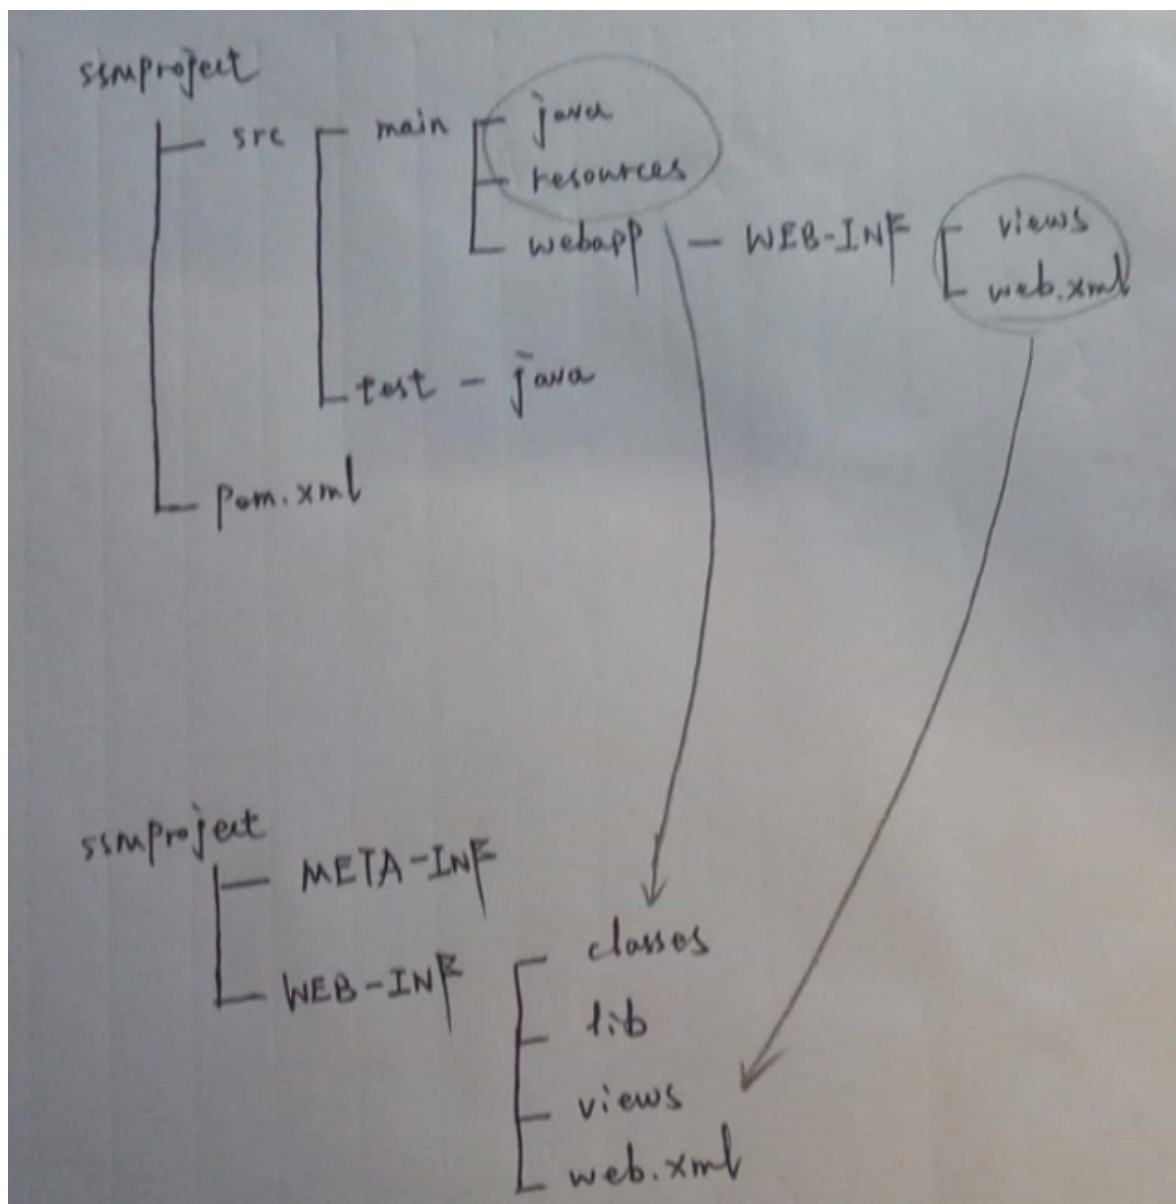 ssmproject
src main java
resources
webapp - WEB-INF views
web.xml
test - java
pom.xml
ssmproject
META-INF
WEB-INF classes
lib
views
web.xml